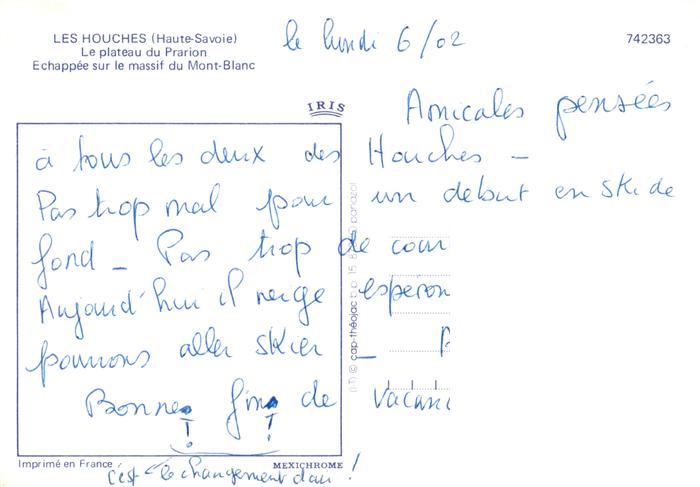 LES HOUCHES (Haute-Savoie)
Le plateau du Prarion
Echappée sur le massif du Mont-Blanc
le lundi 6/02
742363
IRIS
Amicales pensées
à tous les deux des Houches -
Pas trop mal pour un début en ski de
fond - Pas trop de cour
Aujourd'hui il neige esperon
pourrons aller skier -
Bonnes fins de vacanc
! !
Imprimé en France
MEXICHROME
c'est le changement d'air !
cap-théojac